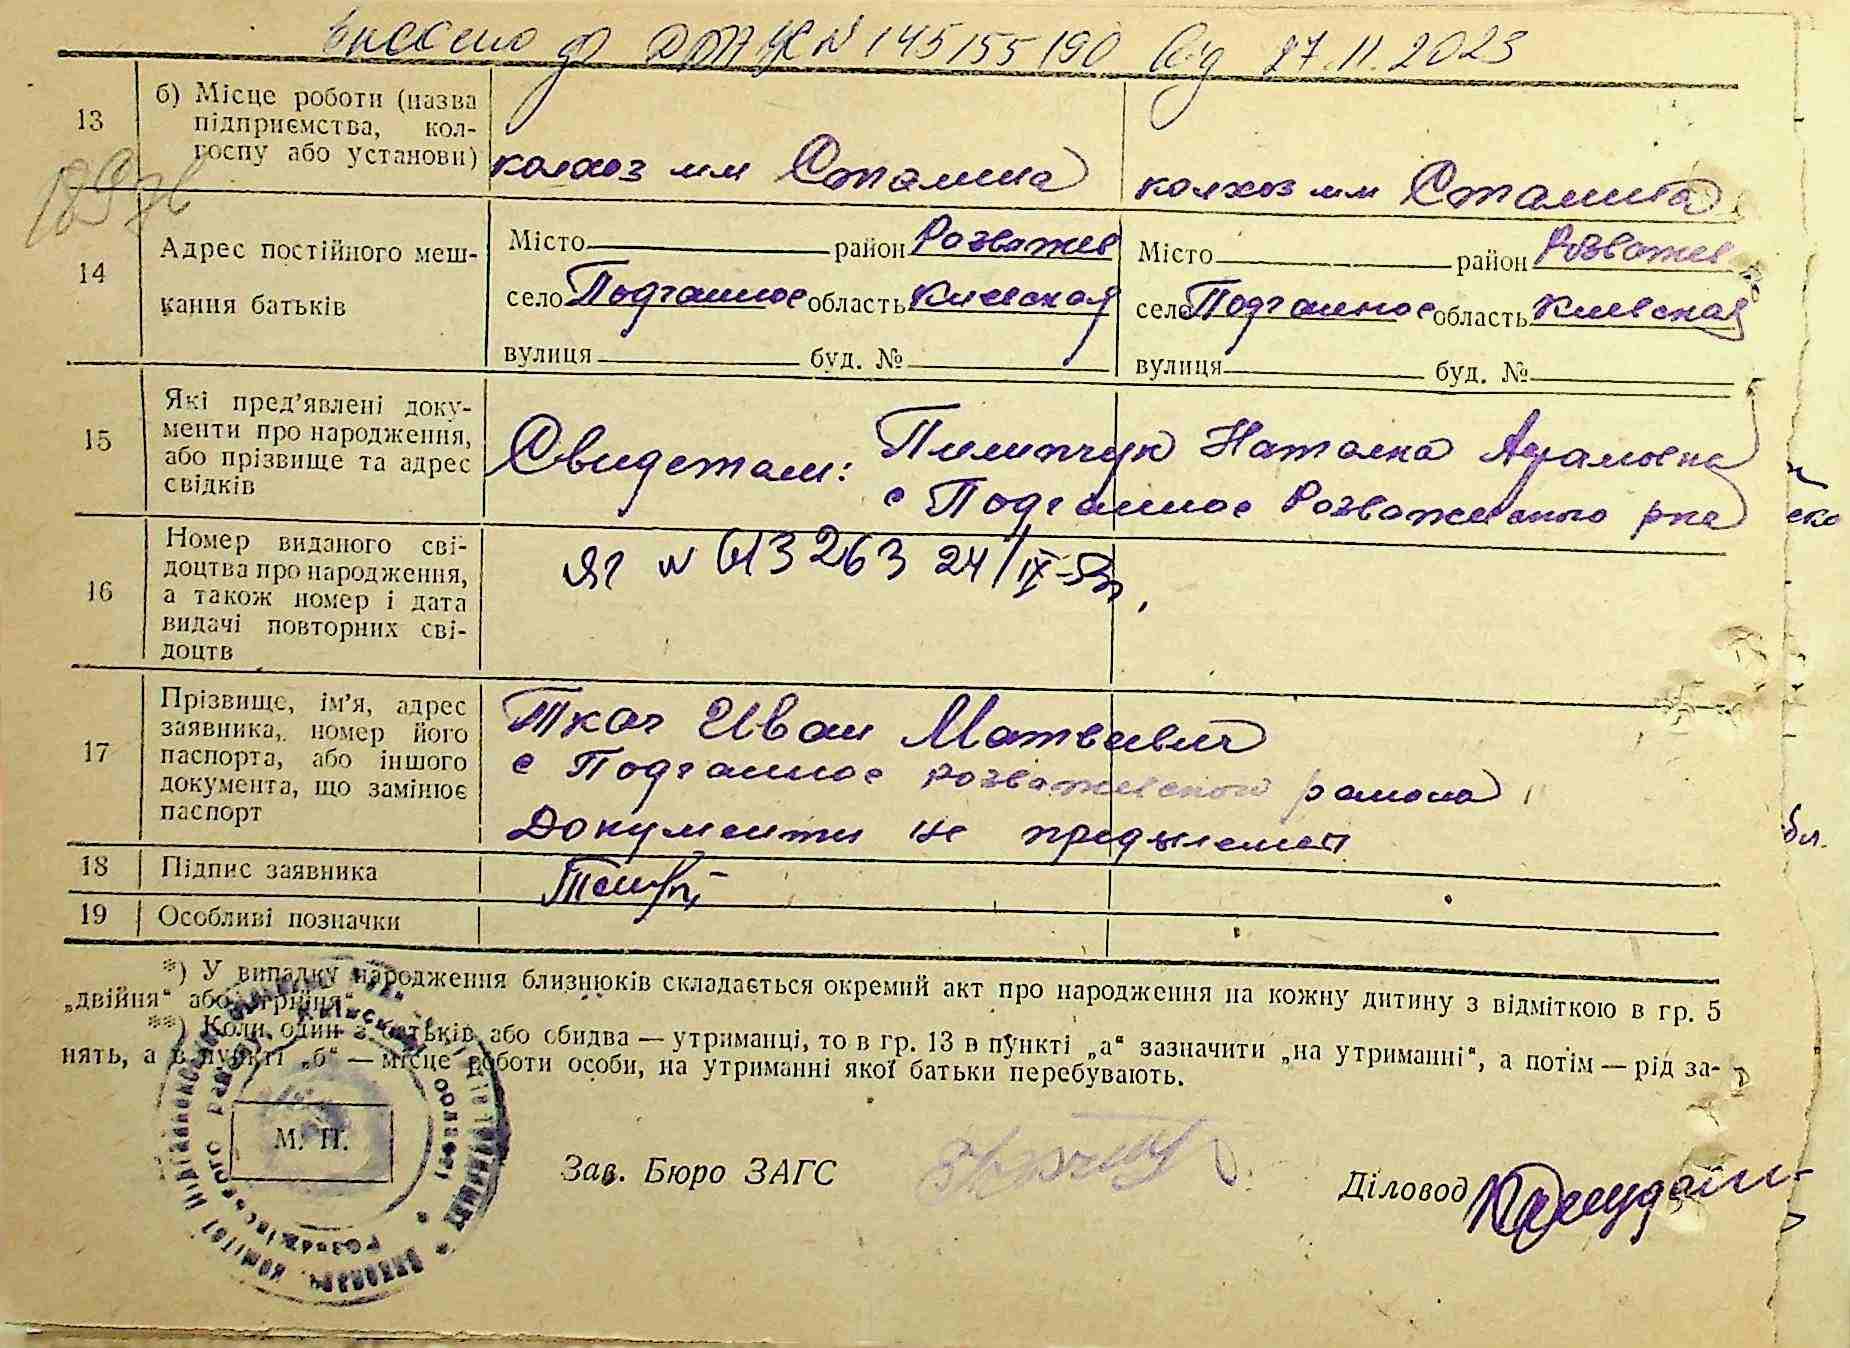 Внесено до ДРАЦС № 145155190 від 27.11.2023
13 б) Місце роботи (назва
підприємства, кол-
госпу або установи)
колхоз им Сталина
колхоз им Сталина
14 Адрес постійного меш-
кання батьків
Місто район Розважев
село Подгайное область Киевская
вулиця буд. №
Місто район Розважев
село Подгайное область Киевская
вулиця буд. №
15 Які пред'явлені доку-
менти про народження,
або прізвище та адрес
свідків
Свидетели: Пилипчук Наталка Адамовна
с Подгайное Розважевского р-на
16 Номер виданого сві-
доцтва про народження,
а також номер і дата
видачі повторних сві-
доцтв
ЯГ № 613263 24/IX-53г.
17 Прізвище, ім'я, адрес
заявника, номер його
паспорта, або іншого
документа, що замінює
паспорт
Ткач Иван Матвеевич
с Подгайное Розважевского района
Документи не предъявлен
18 Підпис заявника
19 Особливі позначки
*) У випадку народження близнюків складається окремий акт про народження на кожну дитину з відміткою в гр. 5
„двійня“ або „трійня“.
**) Коли один з батьків або обидва — утриманці, то в гр. 13 в пункті „а“ зазначити „на утриманні“, а потім — рід за-
нять, а в пункті „б“ — місце роботи особи, на утриманні якої батьки перебувають.
М. П.
Зав. Бюро ЗАГС
Діловод